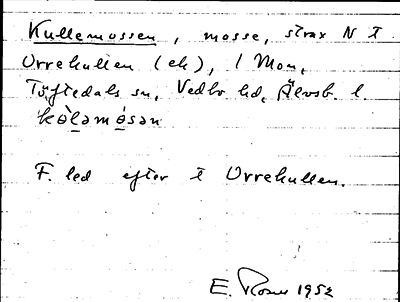 Kullemossen, mosse, strax N f
Orrekullen (ek), l Mon,
Töftedals sn, Vedbo hd, Älvsb. l.
kòləmósən
F. led efter f Orrekullen.
E. Rosell 1952